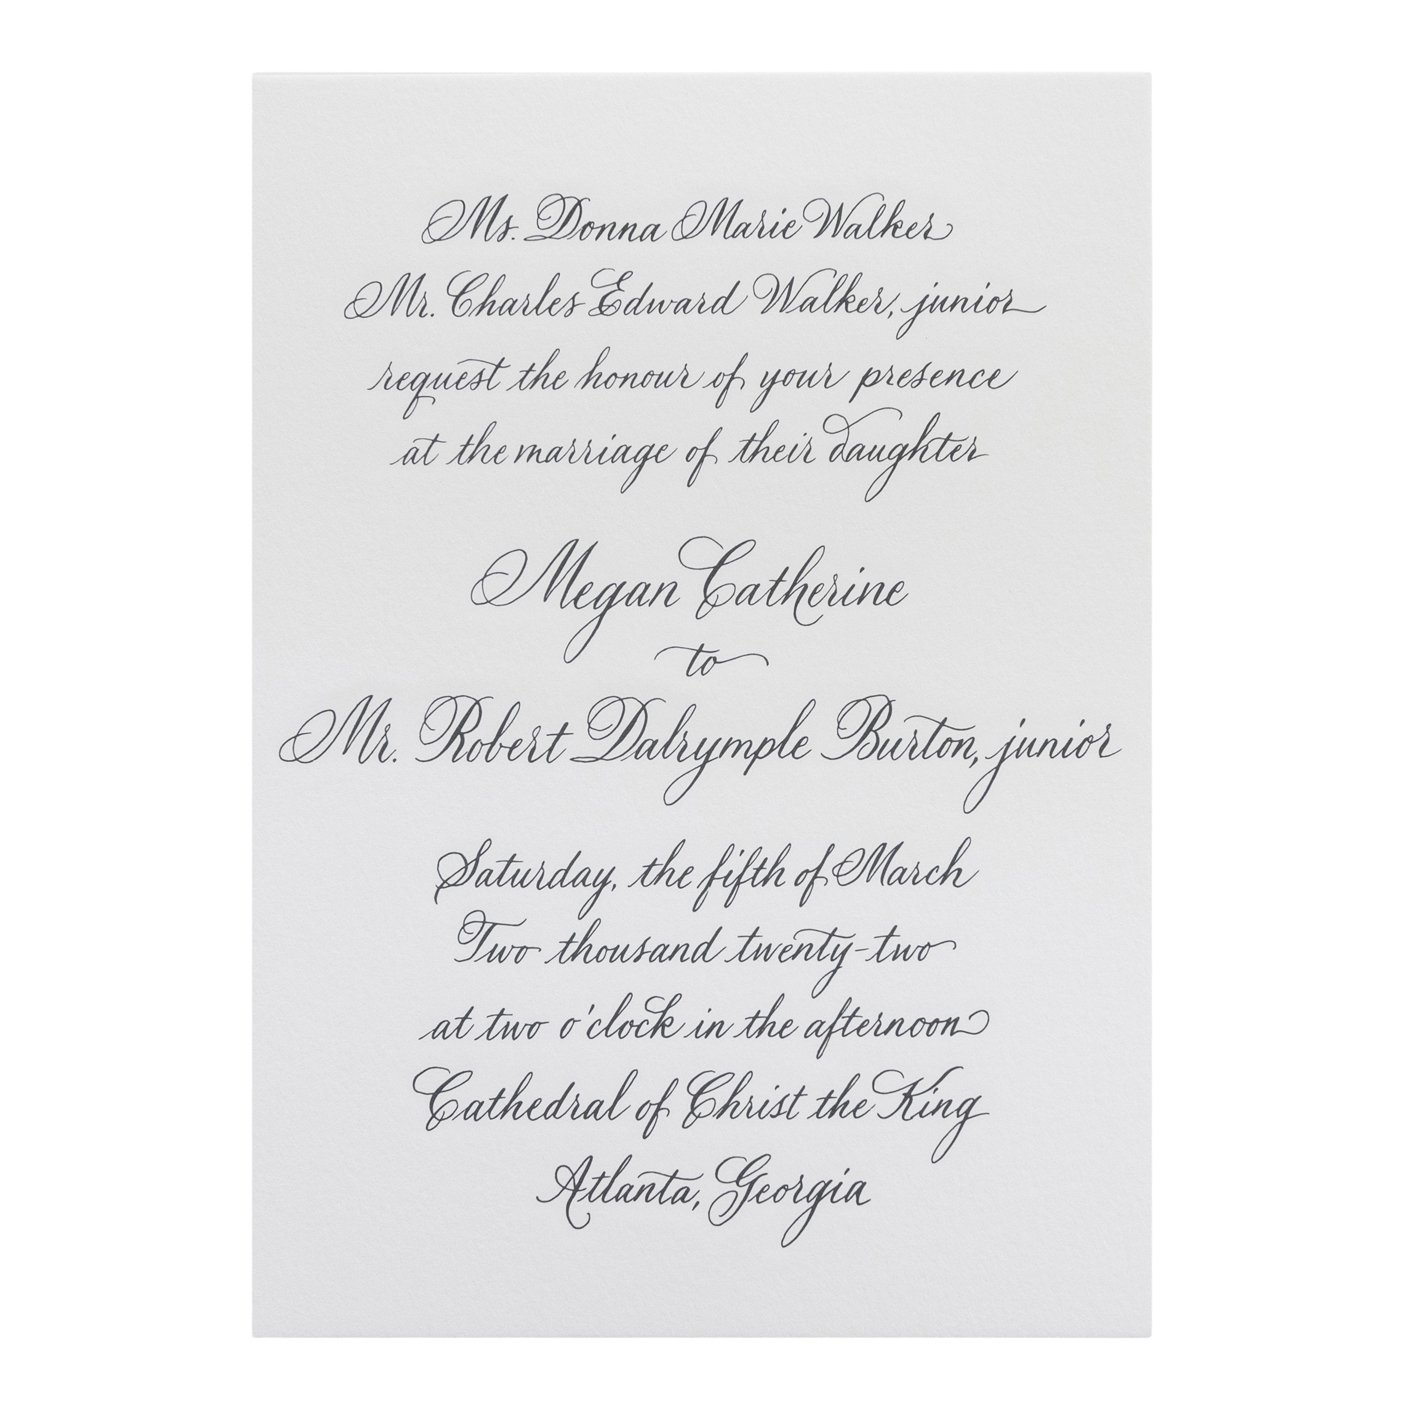 Ms. Donna Marie Walker
Mr. Charles Edward Walker, junior
request the honour of your presence
at the marriage of their daughter
Megan Catherine
to
Mr. Robert Dalrymple Burton, junior
Saturday, the fifth of March
Two thousand twenty-two
at two o'clock in the afternoon
Cathedral of Christ the King
Atlanta, Georgia